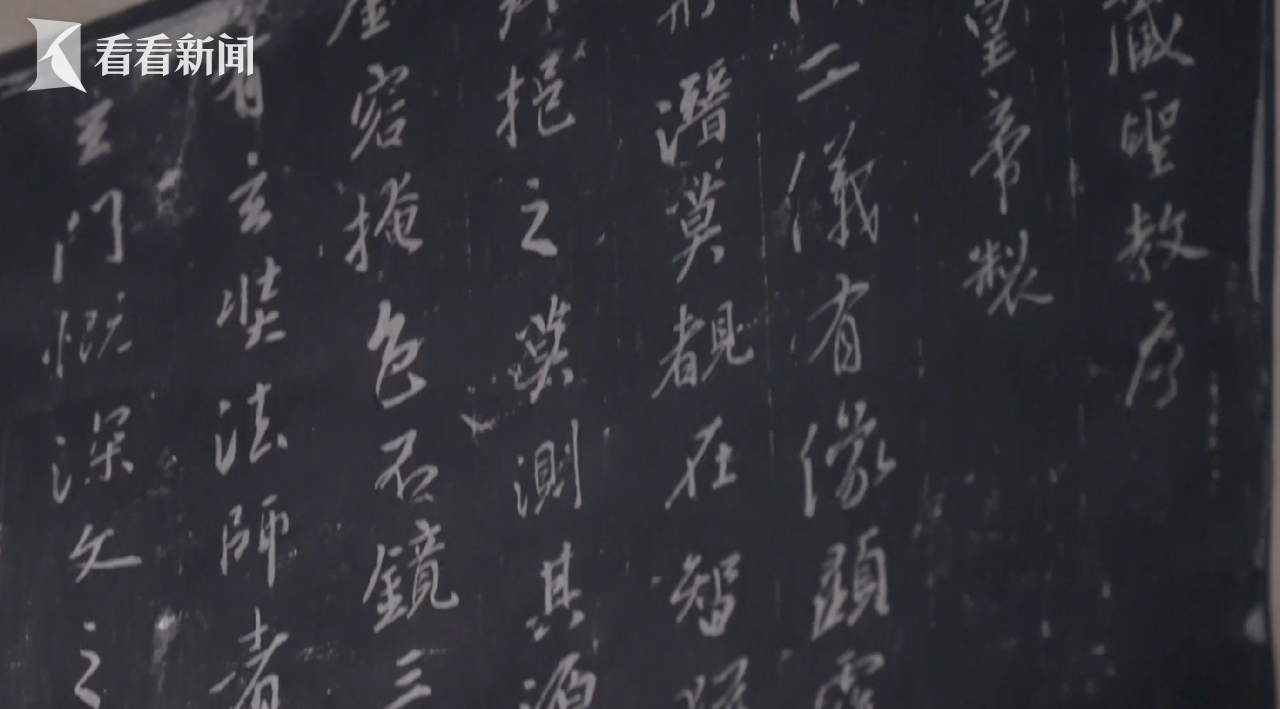 看看新闻
藏聖教序
皇帝製
二儀有像顯
形潛莫覩在智
挹之莫測其源
金容掩色不鏡三
有玄奘法師者
玄門慨深文之